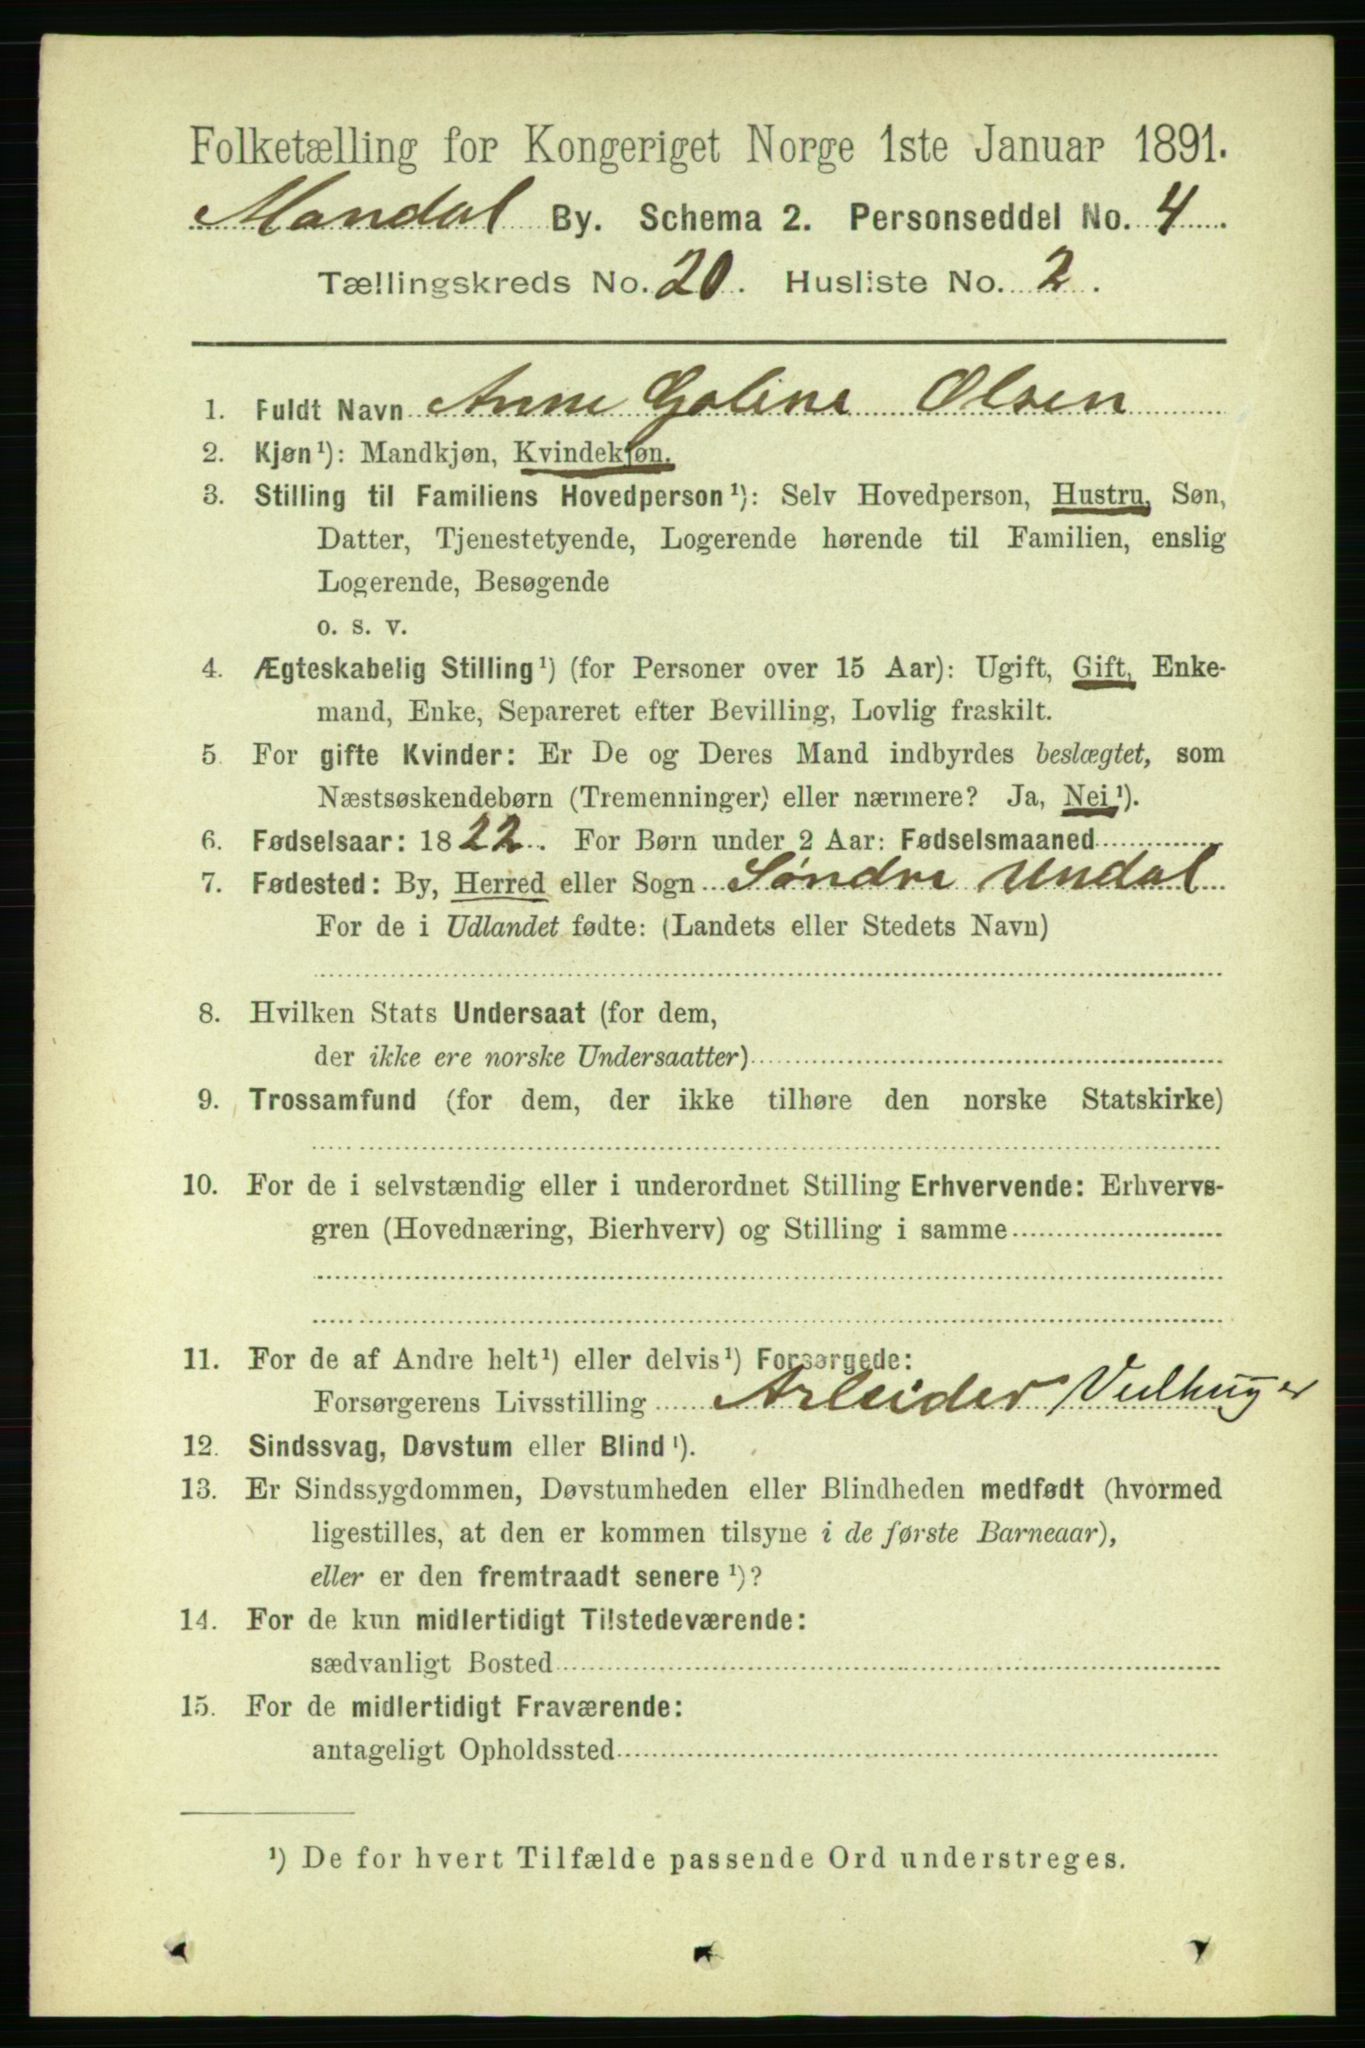 Folketælling for Kongeriget Norge 1ste Januar 1891.
Mandal By. Schema 2. Personseddel No. 4
Tællingskreds No. 20. Husliste No. 2.
1. Fuldt Navn Anne Goline Olsen
2. Kjøn¹): Mandkjøn, Kvindekjøn.
3. Stilling til Familiens Hovedperson¹): Selv Hovedperson, Hustru, Søn,
Datter, Tjenestetyende, Logerende hørende til Familien, enslig
Logerende, Besøgende
o. s. v.
4. Ægteskabelig Stilling¹) (for Personer over 15 Aar): Ugift, Gift, Enke-
mand, Enke, Separeret efter Bevilling, Lovlig fraskilt.
5. For gifte Kvinder: Er De og Deres Mand indbyrdes beslægtet, som
Næstsøskendebørn (Tremenninger) eller nærmere? Ja, Nei¹).
6. Fødselsaar: 1822. For Børn under 2 Aar: Fødselsmaaned
7. Fødested: By, Herred eller Sogn Søndre Undal
For de i Udlandet fødte: (Landets eller Stedets Navn)
8. Hvilken Stats Undersaat (for dem,
der ikke ere norske Undersaatter)
9. Trossamfund (for dem, der ikke tilhøre den norske Statskirke)
10. For de i selvstændig eller i underordnet Stilling Erhvervende: Erhvervs-
gren (Hovednæring, Bierhverv) og Stilling i samme
11. For de af Andre helt¹) eller delvis¹) Forsørgede:
Forsørgerens Livsstilling Arbeider
12. Sindssvag, Døvstum eller Blind¹).
13. Er Sindssygdommen, Døvstumheden eller Blindheden medfødt (hvormed
ligestilles, at den er kommen tilsyne i de første Barneaar),
eller er den fremtraadt senere¹)?
14. For de kun midlertidigt Tilstedeværende:
sædvanligt Bosted
15. For de midlertidigt Fraværende:
antageligt Opholdssted
¹) De for hvert Tilfælde passende Ord understreges.